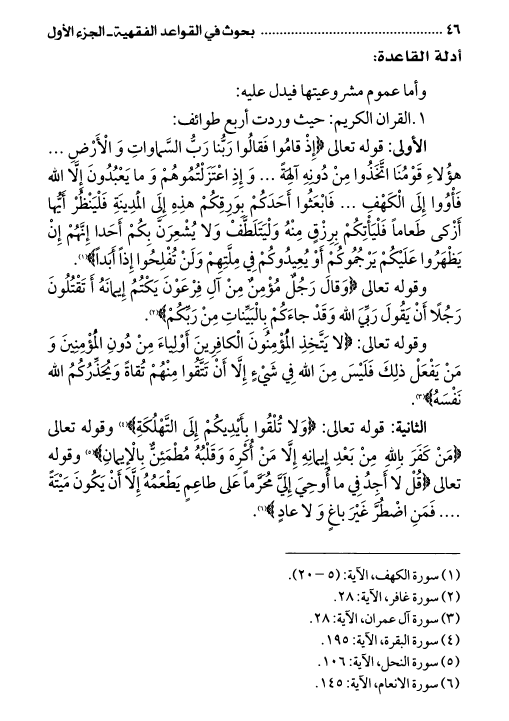 ٤٦ ................................................ بحوث في القواعد الفقهية ـ الجزء الأول
أدلة القاعدة:
وأما عموم مشروعيتها فيدل عليه:
١. القران الكريم: حيث وردت أربع طوائف:
الأولى: قوله تعالى ﴿إِذْ قامُوا فَقالُوا رَبُّنا رَبُّ السَّماواتِ وَ الْأَرْضِ ...
هؤُلاءِ قَوْمُنَا اتَّخَذُوا مِنْ دُونِهِ آلِهَةً ... وَ إِذِ اعْتَزَلْتُمُوهُمْ وَ ما يَعْبُدُونَ إِلَّا اللهَ
فَأْوُوا إِلَى الْكَهْفِ ... فَابْعَثُوا أَحَدَكُمْ بِوَرِقِكُمْ هذِهِ إِلَى الْمَدِينَةِ فَلْيَنْظُرْ أَيُّها
أَزْكى طَعاماً فَلْيَأْتِكُمْ بِرِزْقٍ مِنْهُ وَلْيَتَلَطَّفْ وَلا يُشْعِرَنَّ بِكُمْ أَحَداً إِنَّهُمْ إِنْ
يَظْهَرُوا عَلَيْكُمْ يَرْجُمُوكُمْ أَوْ يُعِيدُوكُمْ فِي مِلَّتِهِمْ وَلَنْ تُفْلِحُوا إِذاً أَبَداً﴾(١).
وقوله تعالى ﴿وَقالَ رَجُلٌ مُؤْمِنٌ مِنْ آلِ فِرْعَوْنَ يَكْتُمُ إِيمانَهُ أَ تَقْتُلُونَ
رَجُلًا أَنْ يَقُولَ رَبِّيَ اللهُ وَقَدْ جاءَكُمْ بِالْبَيِّناتِ مِنْ رَبِّكُمْ﴾(٢).
وقوله تعالى: ﴿لا يَتَّخِذِ الْمُؤْمِنُونَ الْكافِرِينَ أَوْلِياءَ مِنْ دُونِ الْمُؤْمِنِينَ وَ
مَنْ يَفْعَلْ ذلِكَ فَلَيْسَ مِنَ اللهِ فِي شَيْءٍ إِلَّا أَنْ تَتَّقُوا مِنْهُمْ تُقاةً وَيُحَذِّرُكُمُ اللهُ
نَفْسَهُ﴾(٣).
الثانية: قوله تعالى: ﴿وَلا تُلْقُوا بِأَيْدِيكُمْ إِلَى التَّهْلُكَةِ﴾(٤) وقوله تعالى
﴿مَنْ كَفَرَ بِاللهِ مِنْ بَعْدِ إِيمانِهِ إِلَّا مَنْ أُكْرِهَ وَقَلْبُهُ مُطْمَئِنٌّ بِالْإِيمانِ﴾(٥) وقوله
تعالى ﴿قُلْ لا أَجِدُ فِي ما أُوحِيَ إِلَيَّ مُحَرَّماً عَلى طاعِمٍ يَطْعَمُهُ إِلَّا أَنْ يَكُونَ مَيْتَةً
.... فَمَنِ اضْطُرَّ غَيْرَ باغٍ وَ لا عادٍ﴾(٦).
(١) سورة الكهف، الآية: (٥ – ٢٠).
(٢) سورة غافر، الآية: ٢٨.
(٣) سورة آل عمران، الآية: ٢٨.
(٤) سورة البقرة، الآية: ١٩٥.
(٥) سورة النحل، الآية: ١٠٦.
(٦) سورة الانعام، الآية: ١٤٥.